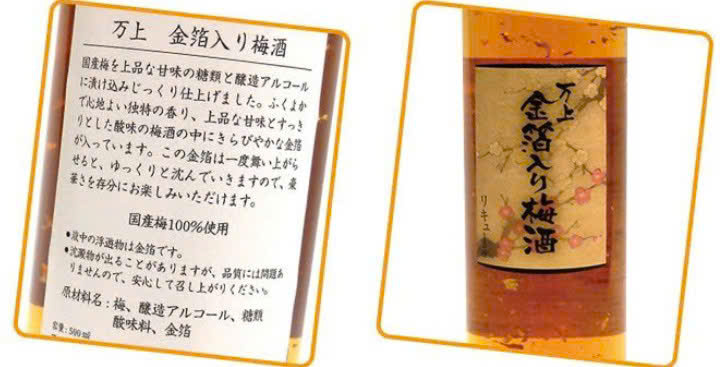 万上 金箔入り梅酒
国産梅を上品な甘味の糖類と醸造アルコール
に漬け込みじっくり仕上げました。ふくよか
で心地よい独特の香り、上品な甘味とすっき
りとした酸味の梅酒の中にきらびやかな金箔
が入っています。この金箔は一度舞い上がら
せると、ゆっくりと沈んでいきますので、豪
華さを存分にお楽しみいただけます。
国産梅100%使用
●液中の浮遊物は金箔です。
●沈澱物が出ることがありますが、品質には問題あ
りませんので、安心して召し上がりください。
原材料名:梅、醸造アルコール、糖類
酸味料、金箔
容量:500ml
万上
金箔入り梅酒
リキュ